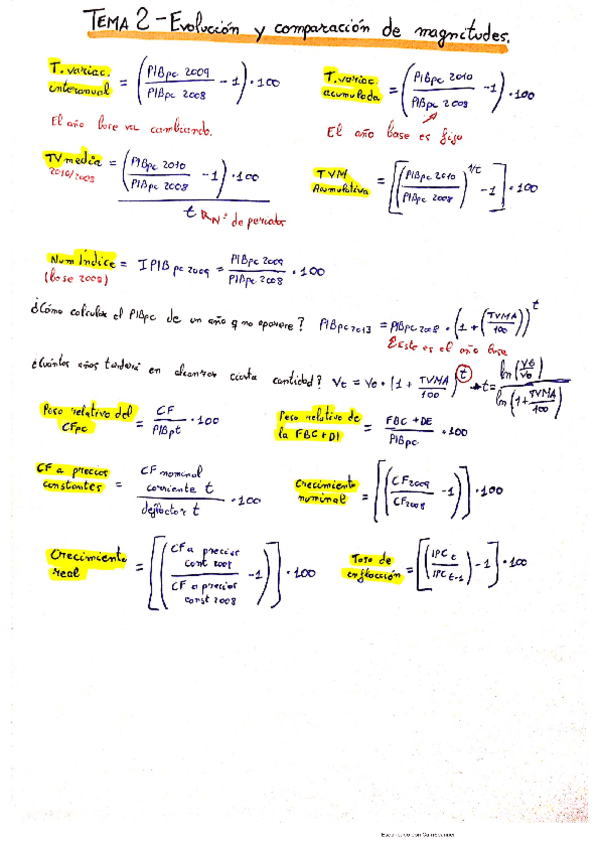 TEMA 2 - Evolución y comparación de magnitudes.
T. variac. interanual = (PIBpc 2009 / PIBpc 2008 - 1) · 100
T. variac. acumulada = (PIBpc 2010 / PIBpc 2008 - 1) · 100
El año base va cambiando.
El año base es fijo
TV media 2010/2008 = (PIBpc 2010 / PIBpc 2008 - 1) · 100 / t → Nº de periodos
TVM Acumulativa = [(PIBpc 2010 / PIBpc 2008)^1/t - 1] · 100
Num Índice (base 2008) = I PIBpc 2009 = PIBpc 2009 / PIBpc 2008 · 100
¿Cómo calcular el PIBpc de un año q no aparece? PIBpc 2013 = PIBpc 2008 · (1 + (TVMA / 100))^t
Este es el año base
¿Cuántos años tardará en alcanzar cierta cantidad? Vt = Vo · (1 + TVMA / 100)^t → t = ln (Vt / Vo) / ln (1 + TVMA / 100)
Peso relativo del CFpc = CF / PIBpt · 100
Peso relativo de la FBC + DI = FBC + DE / PIBpc · 100
CF a precios constantes = CF nominal corriente t / deflactor t · 100
Crecimiento nominal = [(CF2009 / CF2008 - 1)] · 100
Crecimiento real = [(CF a precios const 2009 / CF a precios const 2008 - 1)] · 100
Tasa de inflacción = [(IPC t / IPC t-1) - 1] · 100